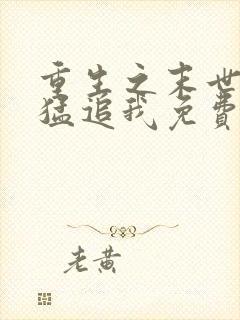 重生之末世
猛追我免费
老黄